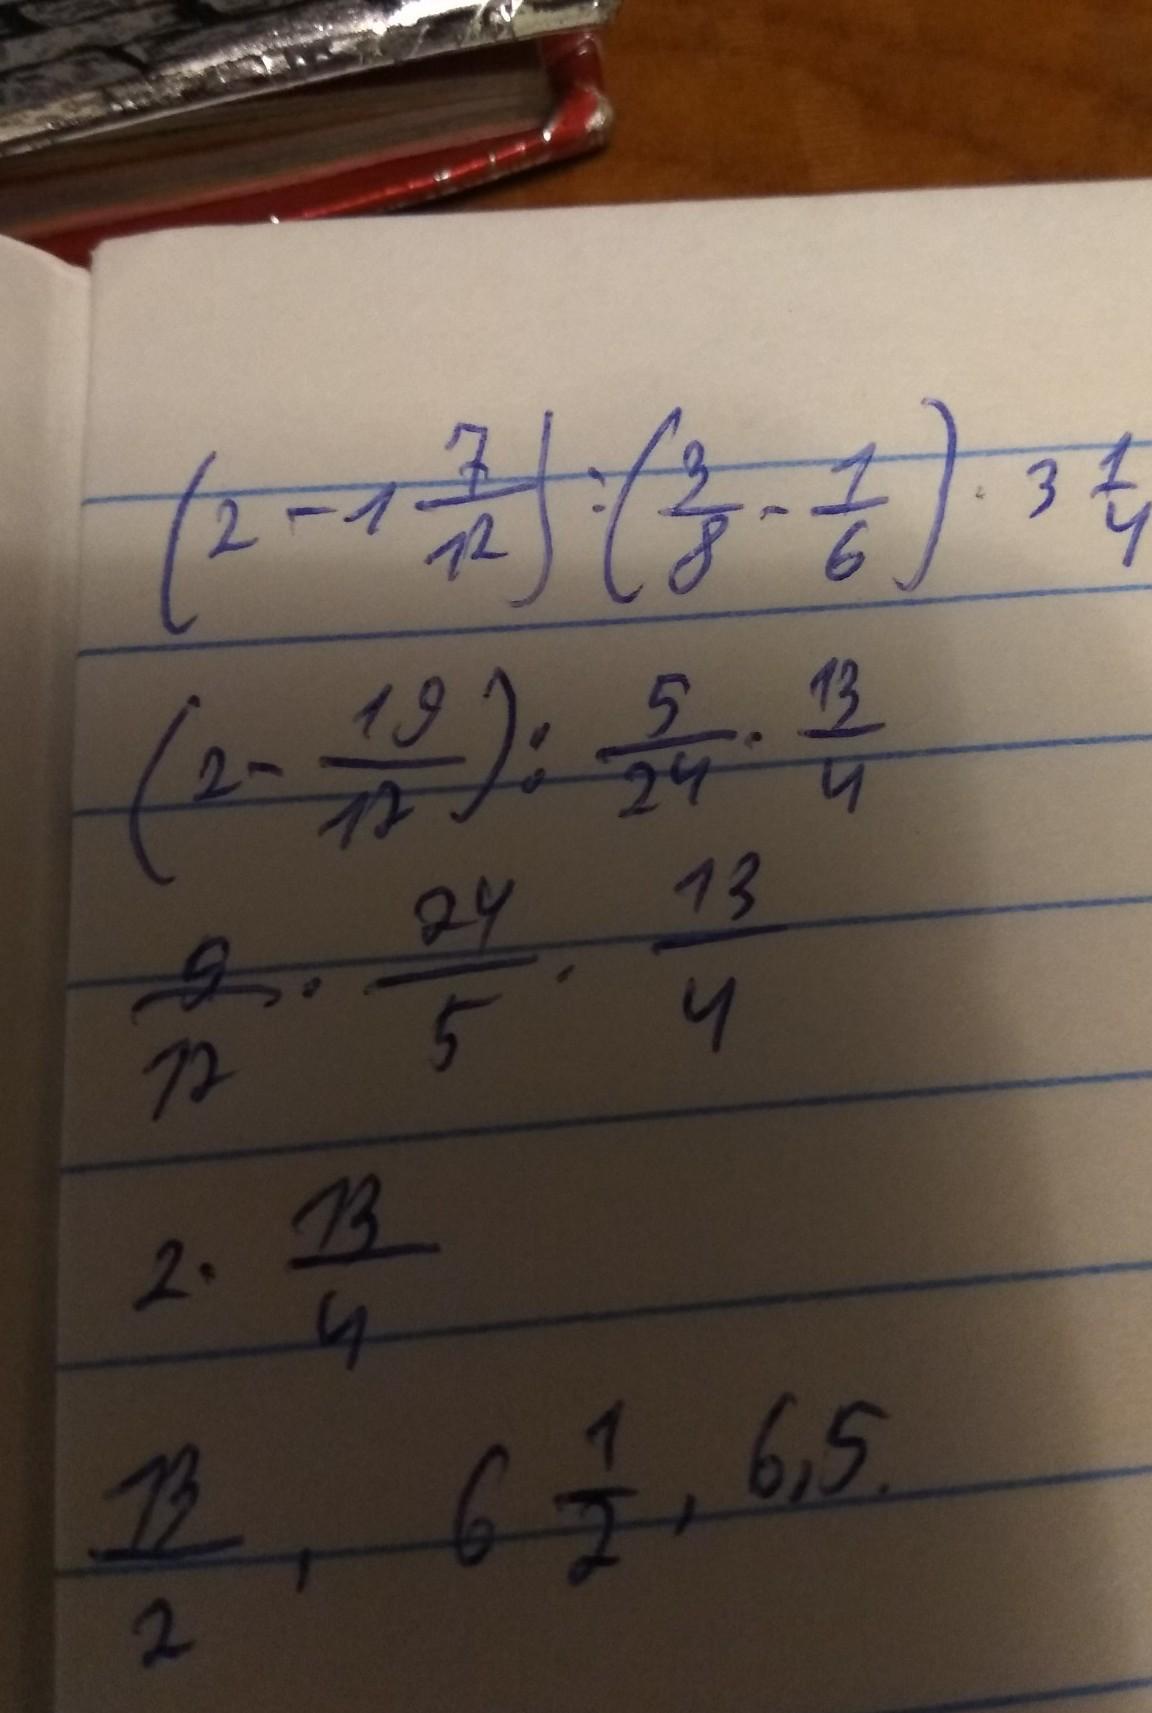 (2 - 1 7/12) : (3/8 - 1/6) · 3 1/4
(2 - 19/12) : 5/24 · 13/4
9/12 · 24/5 · 13/4
2 · 13/4
13/2 , 6 1/2 , 6,5.